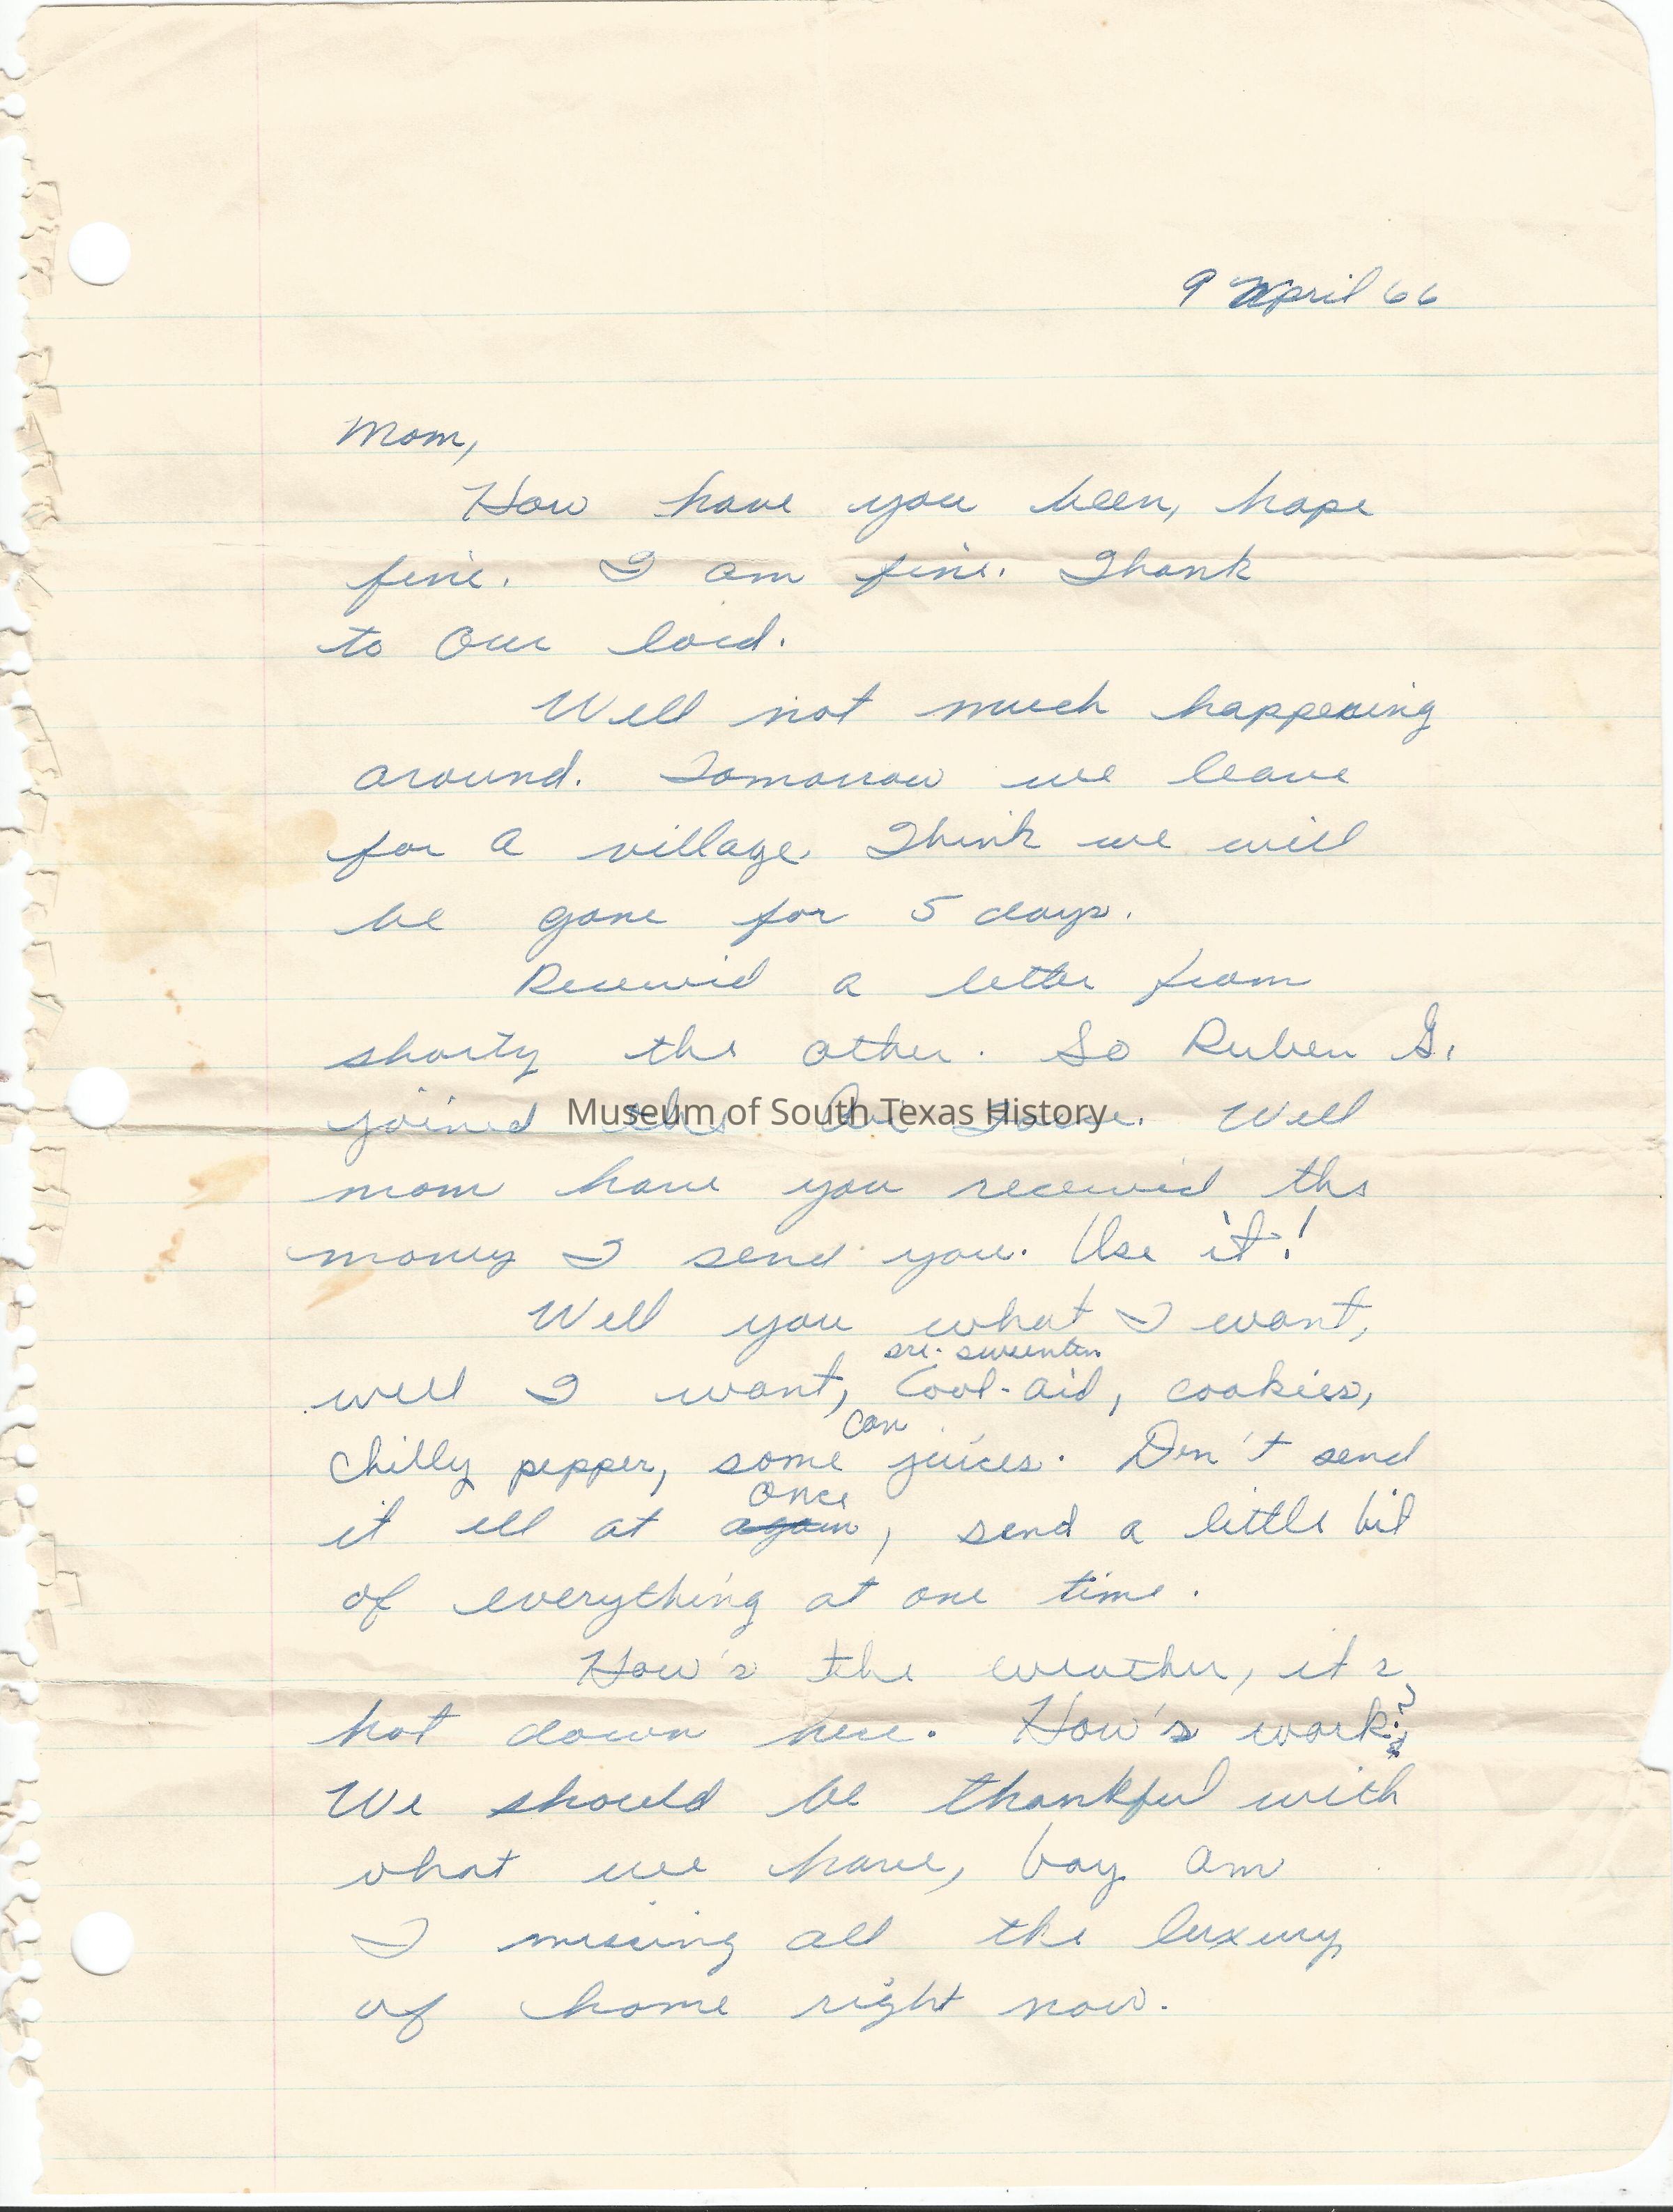 9 April 66
Mom,
How have you been, hope
fine. I am fine. Thank
to Our lord.
Well not much happening
around. Tomorrow we leave
for a village. Think we will
be gone for 5 days.
Received a letter from
shorty the other. So Ruben G.
joined the Air Force. Well
Museum of South Texas History
mom have you received the
money I send you. Use it!
Well you what I want,
pre-sweeten
well I want, Cool-aid, cookies,
can
chilly pepper, some juices. Don't send
once
it all at again, send a little bit
of everything at one time.
How's the weather, its
hot down here. How's work?
We should be thankful with
what we have, boy am
I missing all the luxury
of home right now.